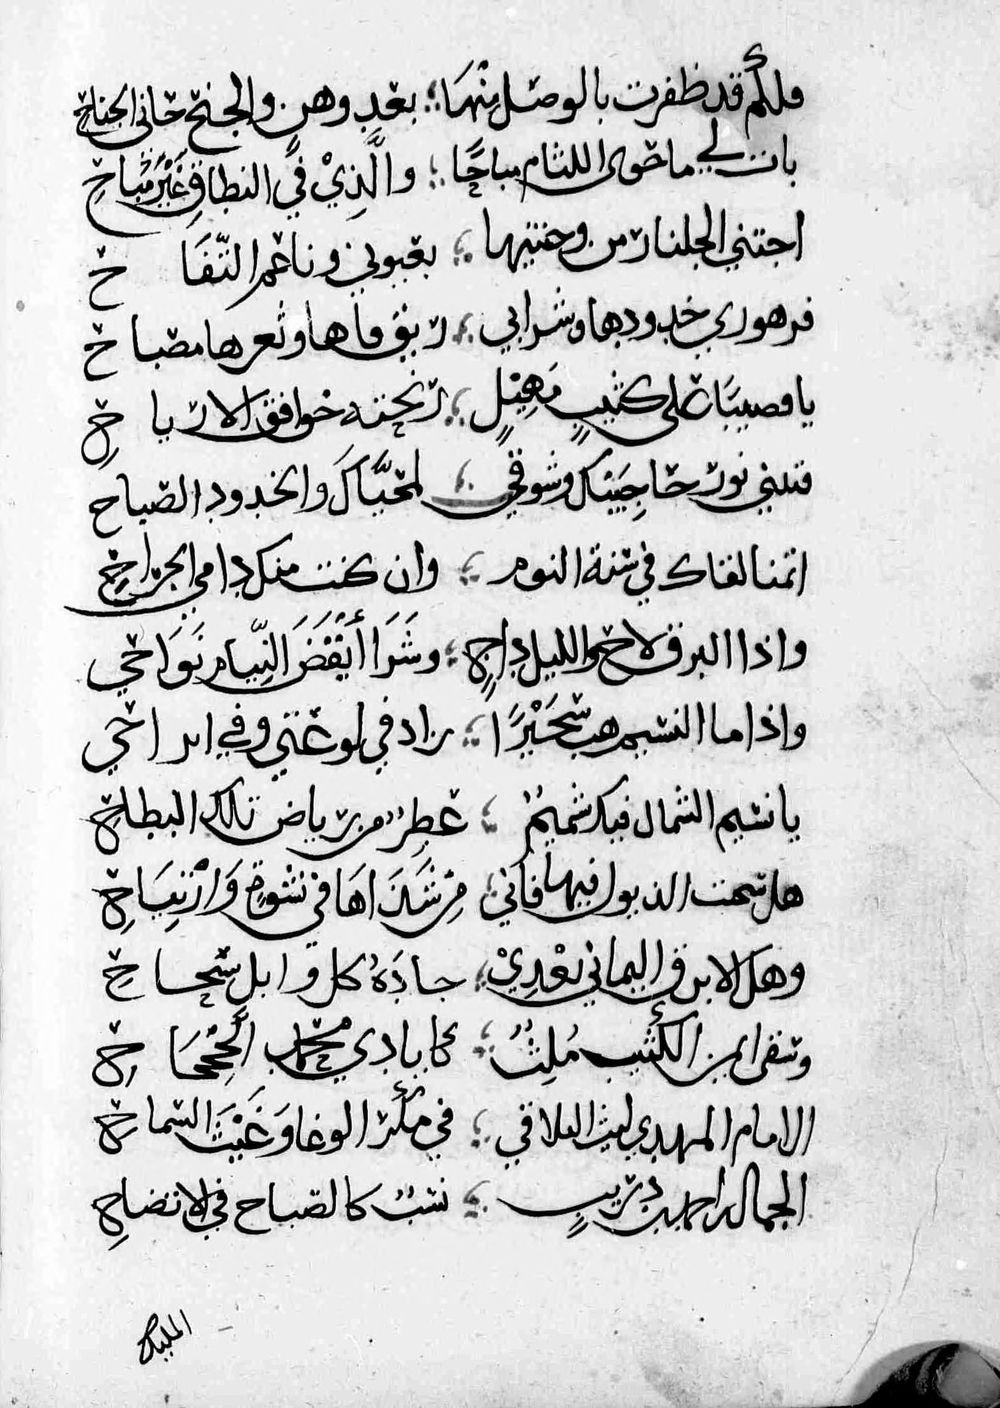 فلكم قد ظفرت بالوصل منها ؛ بعد وهن والجنح حاني الجناح
بات لي ما حوى اللثام مباحًا ؛ والذي في النطاق غير مباح
اجتني الجلنار من وجنتيها ؛ بعيوني وناعم التفاح
فزهوري خدودها وشرابي ؛ ريق فاها وثغرها مصباح
يا قضيبًا على كثيب مهيل ؛ رنحته خوافق الارياح
فتنني نور حاجبيك وشوقي ؛ لمحياك والخدود الصباح
اتمنا لقاك في سنة النوم ؛ وان كنت منك دامي الجراح
واذا البرق لاح والليل داج ؛ وشرا أيقض النيام نواحي
واذا ما النسيم هب سحيرًا ؛ زاد في لوعتي وفي ابراحي
يا نسيم الشمال فيك شميم ؛ عطر من رياض تلك البطاح
هل سحبت الذيول فيها فاني ؛ من شذاها في نشوة وارتياح
وهل الابرق اليماني بعدي ؛ جاده كل وابل سحاح
وسقى ايمن الكثيب ملث ؛ كايادي محمد الجحجاح
الامام المهدي ليث التلاقي ؛ في مكر الوغا وغيث السماح
الجمالي احمد بن ؛ نسب كالصباح في الاتضاح